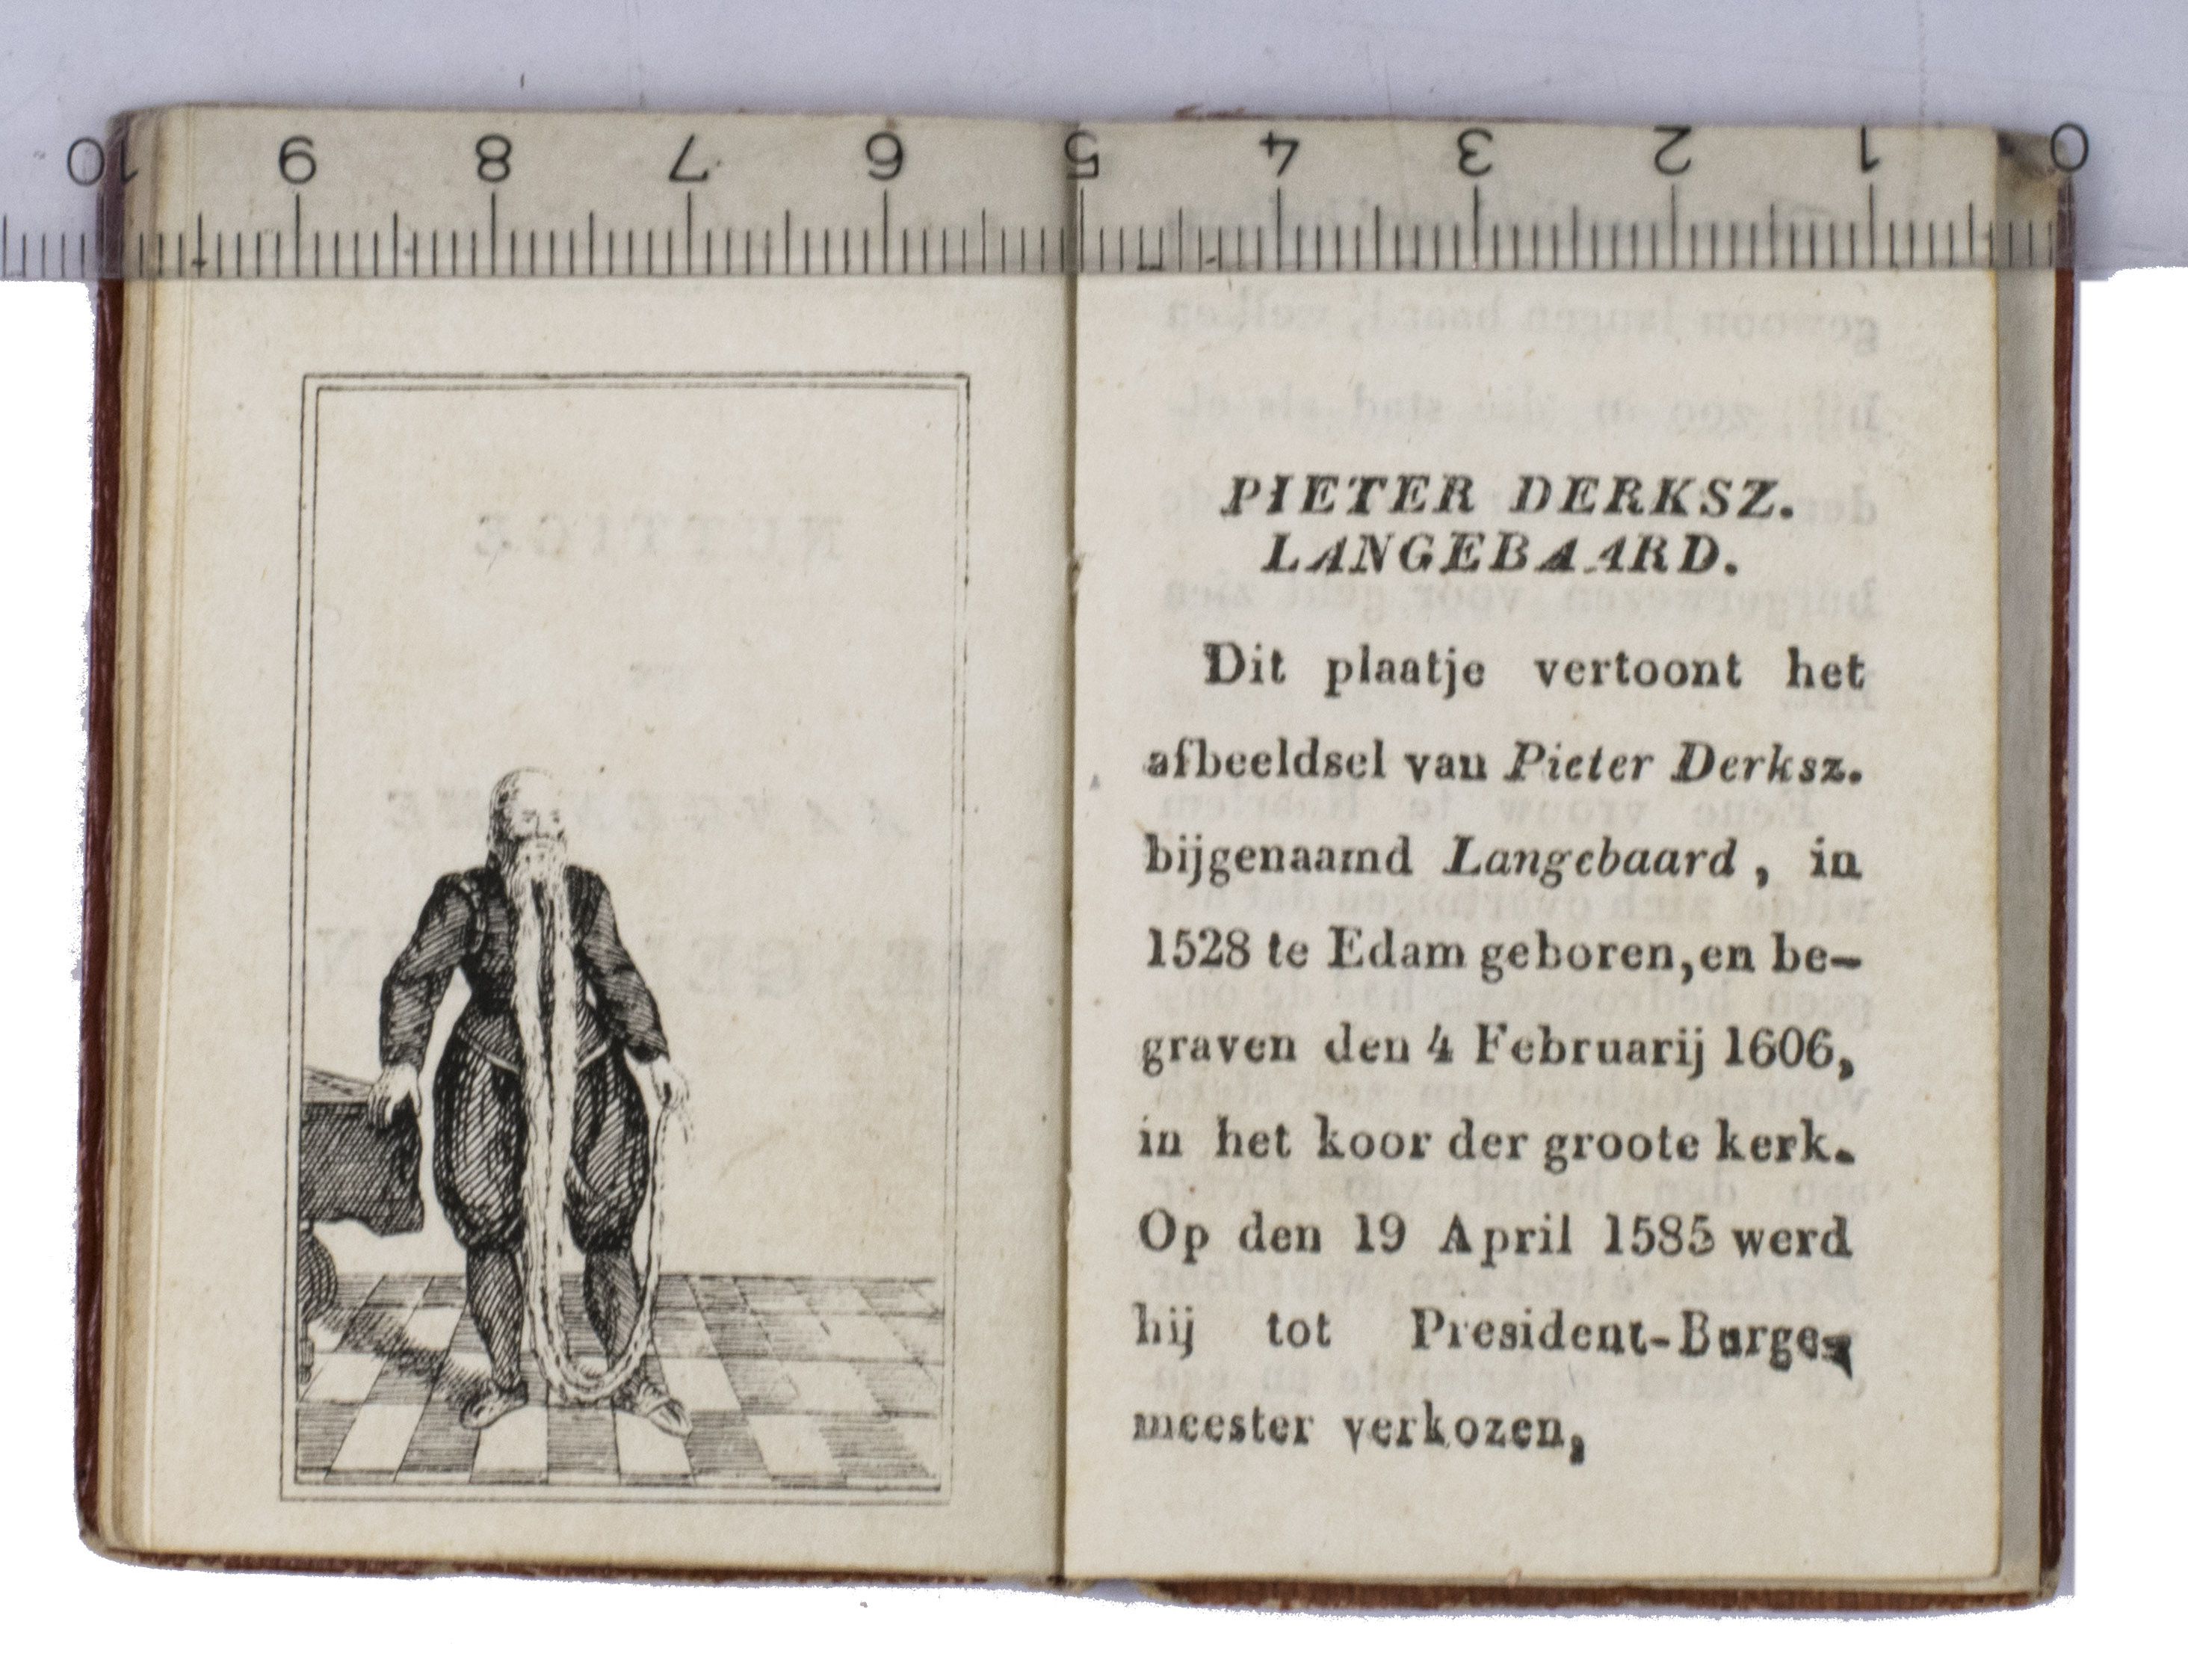 10 9 8 7 6 5 4 3 2 1 0
PIETER DERKSZ.
LANGEBAARD.
Dit plaatje vertoont het
afbeeldsel van Pieter Derksz.
bijgenaamd Langebaard, in
1528 te Edam geboren, en be-
graven den 4 Februarij 1606,
in het koor der groote kerk.
Op den 19 April 1585 werd
hij tot President-Burge-
meester verkozen,